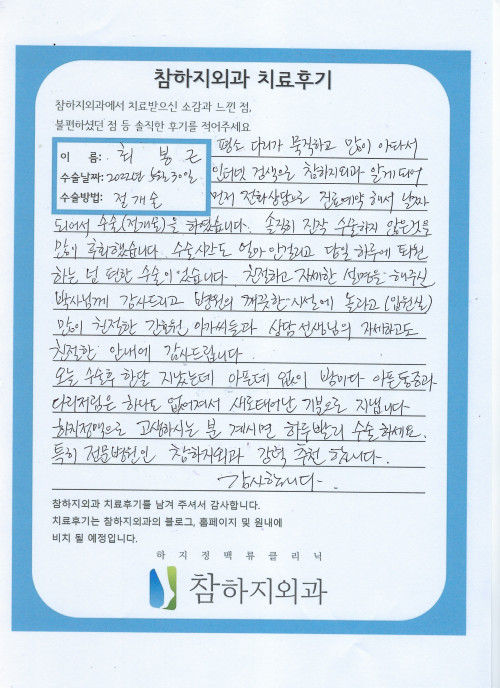 참하지외과 치료후기
참하지외과에서 치료받으신 소감과 느낀 점,
불편하셨던 점 등 솔직한 후기를 적어주세요
이 름: 최 봉 근
수술날짜: 2022년 5월 30일
수술방법: 절개술
평소 다리가 묵직하고 많이 아파서
인터넷 검색으로 참하지외과 알게되어
먼저 전화상담으로 진료예약 해서 날짜
되어서 수술(절개술)을 하였습니다. 솔직히 진작 수술하지 않은것을
많이 후회했습니다. 수술시간도 얼마 안걸리고 당일 하루에 퇴원
하는 넘 편한 수술이었습니다. 친절하고 자세한 설명을 해주신
박사님께 감사드리고 병원의 깨끗한 시설에 놀라고 (입원실)
많이 친절한 간호원, 아가씨들과 상담선생님의 자세하고도
친절한 안내에 감사드립니다.
오늘 수술후 한달 지났는데 아픈데 없이 밤마다 아픈통증과
다리저림은 하나도 없어져서 새로태어난 기분으로 지냅니다
하지정맥으로 고생하시는 분 계시면 하루빨리 수술하세요.
특히 전문병원인 참하지외과 강력 추천 합니다.
감사합니다.
참하지외과 치료후기를 남겨 주셔서 감사합니다.
치료후기는 참하지외과의 블로그, 홈페이지 및 원내에
비치 될 예정입니다.
하지정맥류클리닉
참하지외과